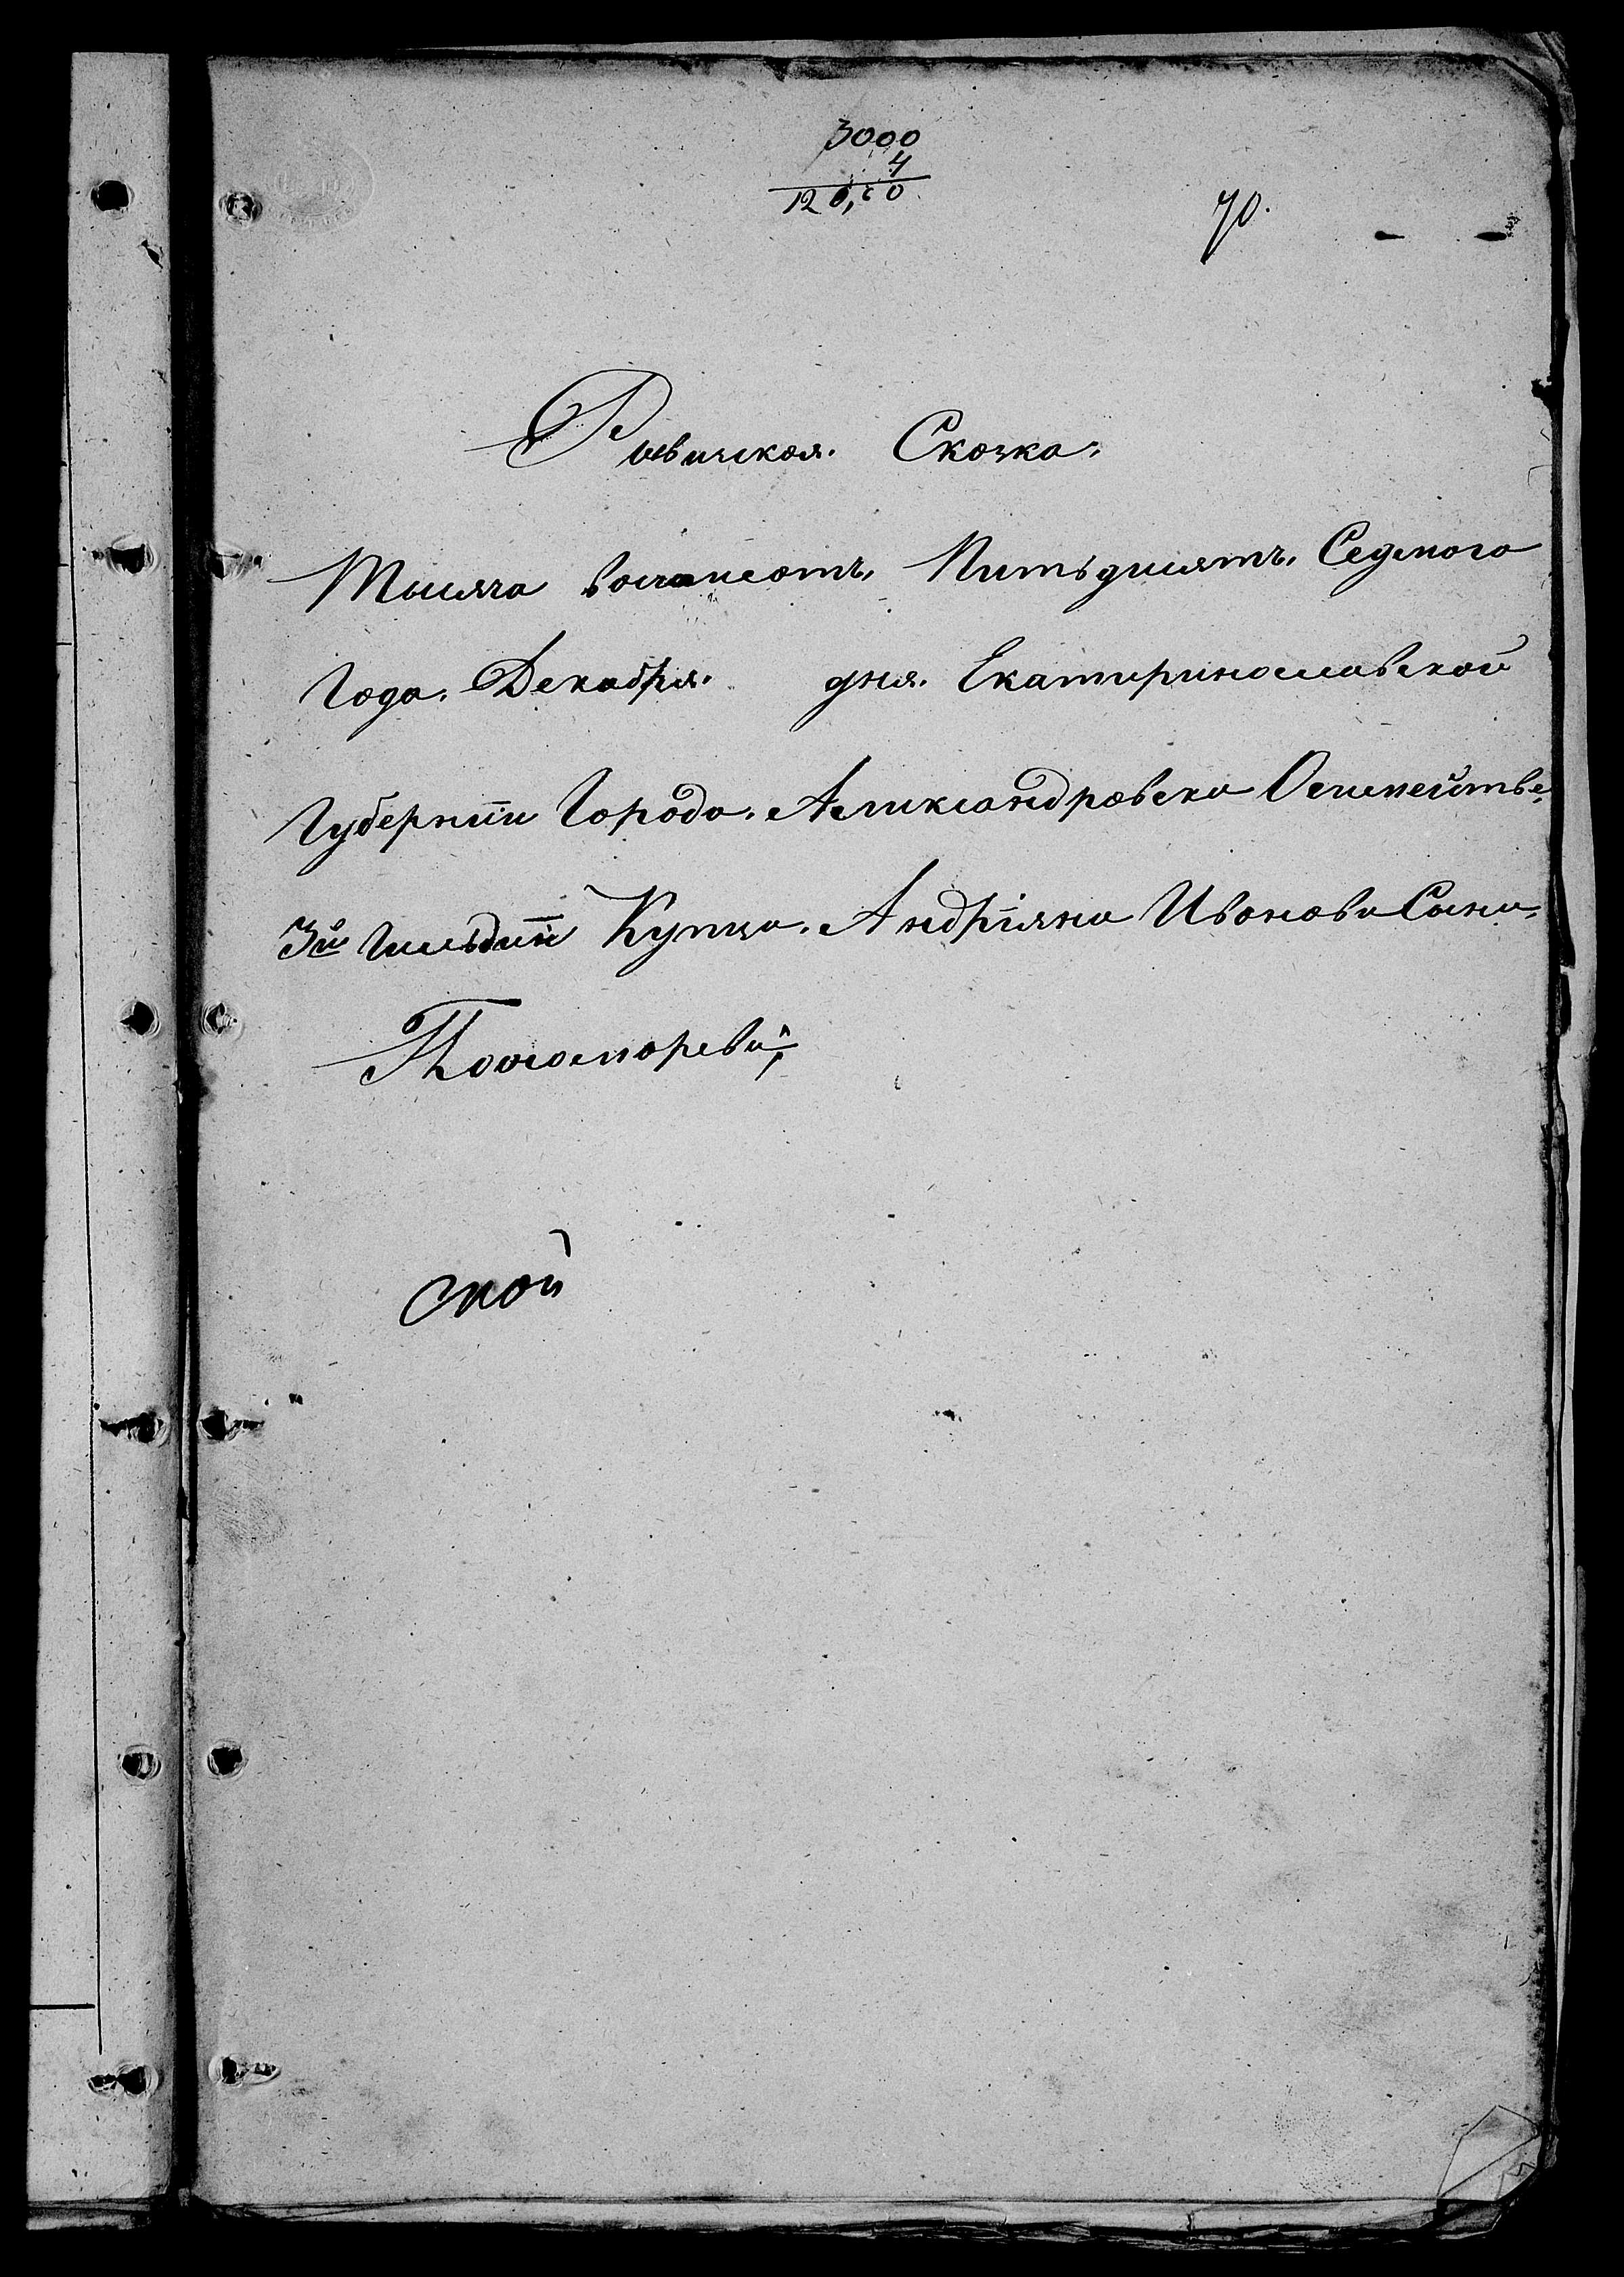 3000
4
120,00
70.
Ревизская. Скозка.
Тысяча восемсотъ. Питьдисятъ. Седмого
Года. Декабря. дня. Екатиринославской
Губернїи Города. Аликсандровска Осимействе
3й Гильдїи Купца. Андрїяна Иванова Сына.
Пономорева
ской